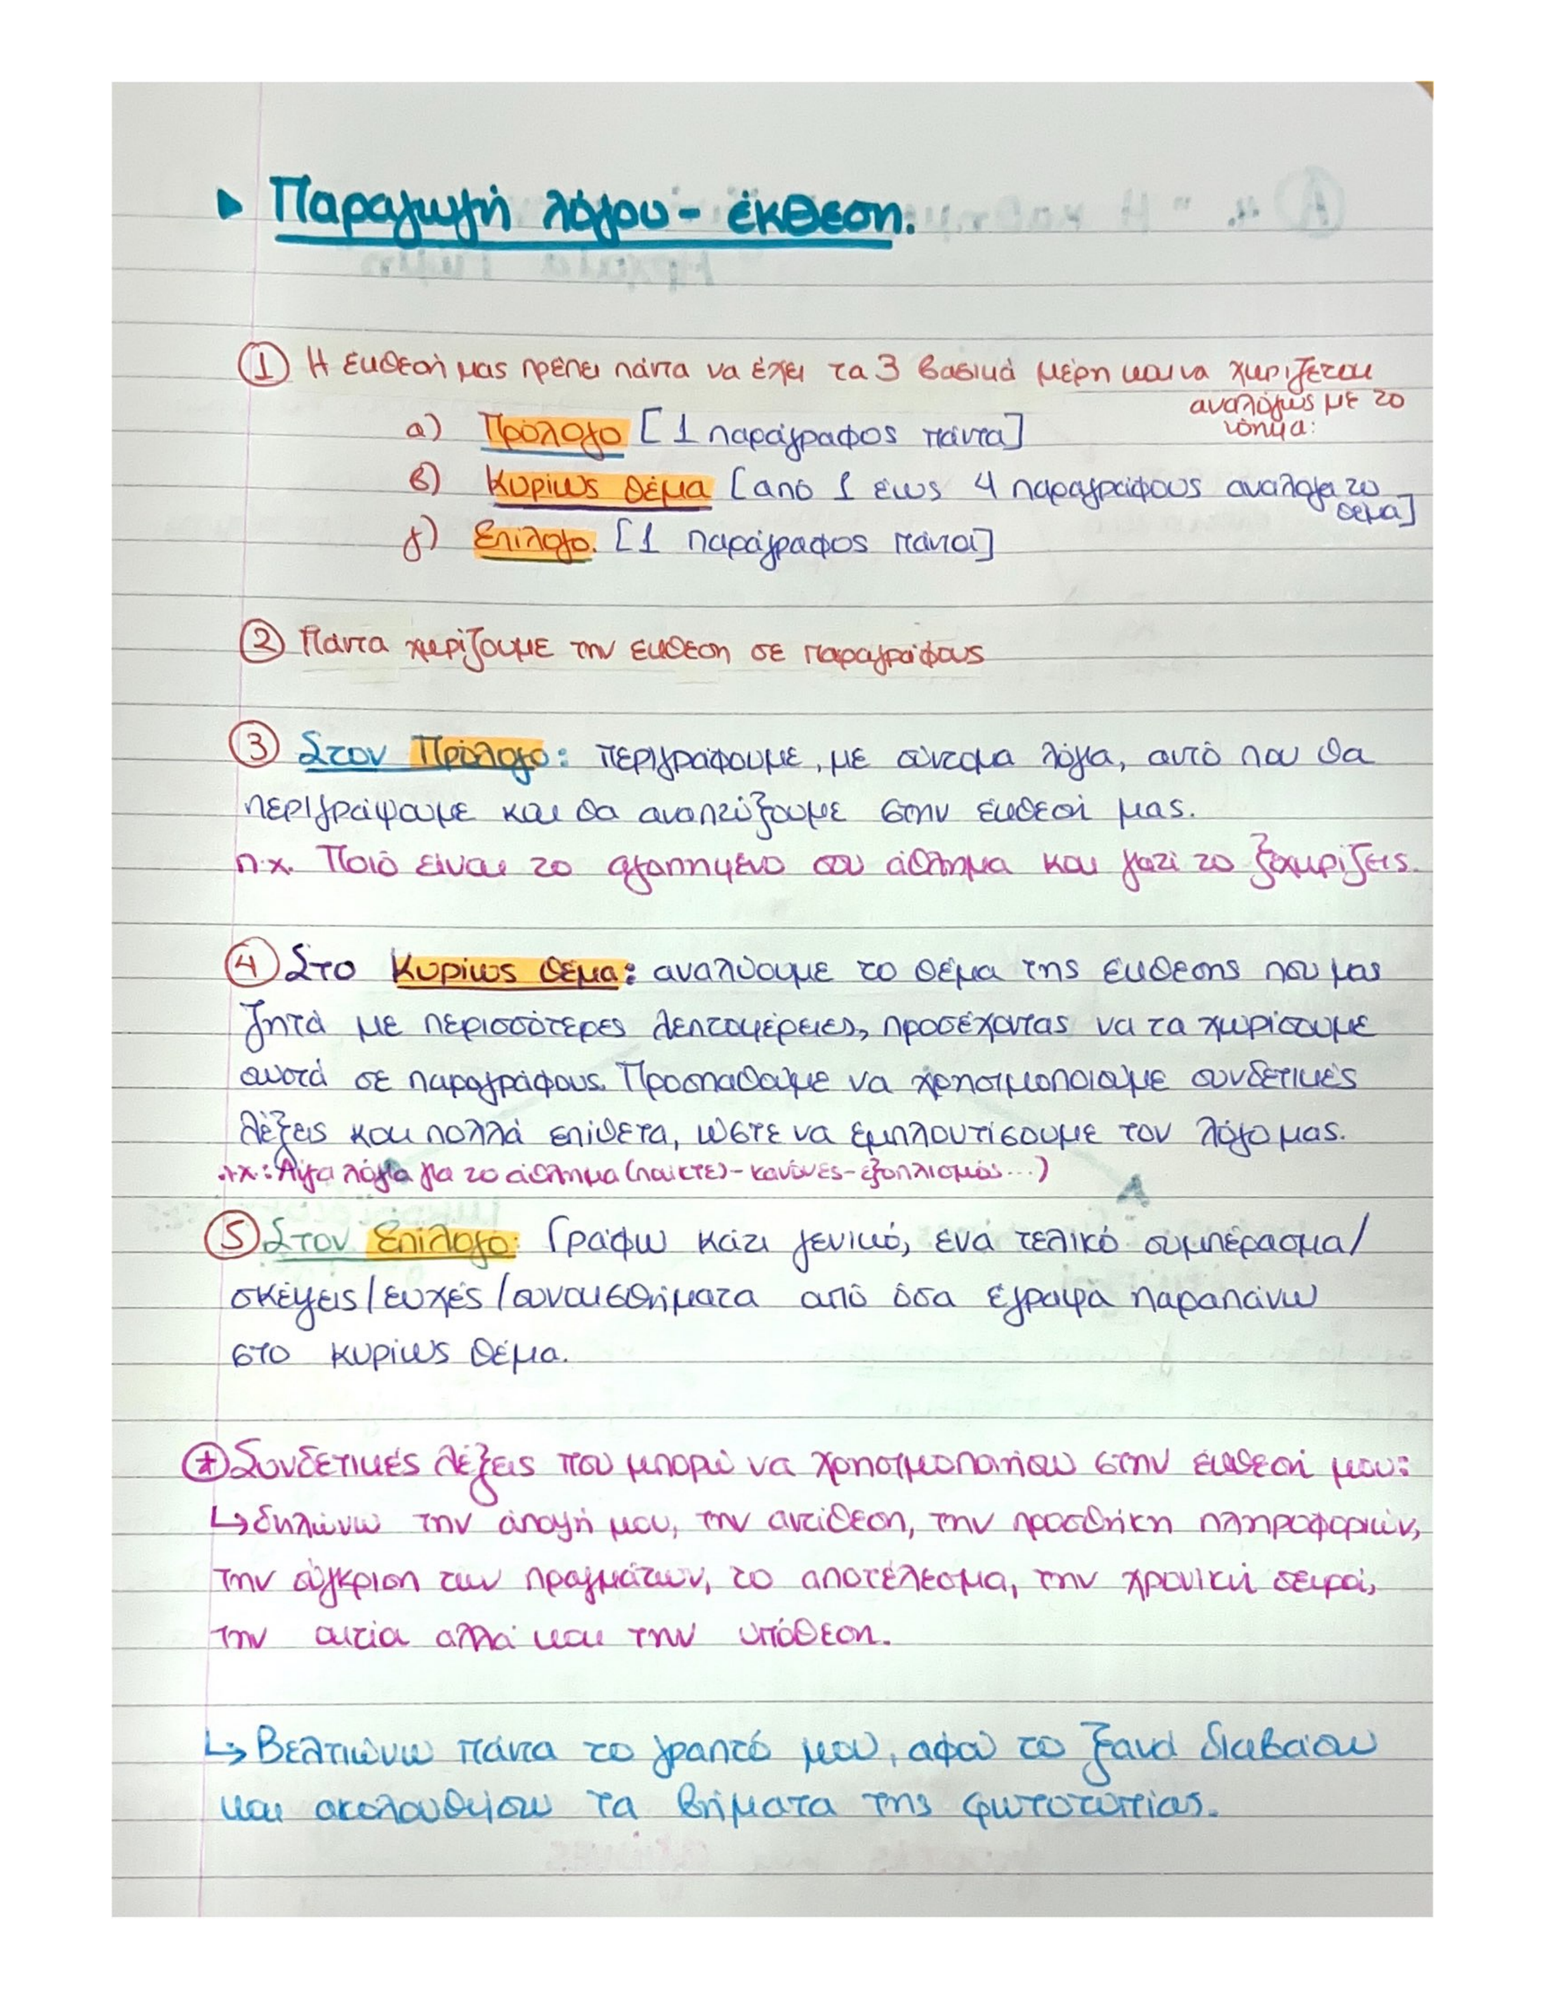 ▸ Παραγωγή λόγου - έκθεση.
① Η έκθεσή μας πρέπει πάντα να έχει τα 3 βασικά μέρη και να χωρίζεται
αναλόγως με το
νόημα:
α) Πρόλογο [1 παράγραφος πάντα]
β) Κυρίως θέμα [από 1 έως 4 παραγράφους ανάλογα το
θέμα]
γ) Επίλογο. [1 παράγραφος πάντα]
② Πάντα χωρίζουμε την έκθεση σε παραγράφους
③ Στον Πρόλογο: περιγράφουμε, με σύντομα λόγια, αυτό που θα
περιγράψουμε και θα αναπτύξουμε στην έκθεσή μας.
π.χ. Ποιό είναι το αγαπημένο σου άθλημα και γιατί το ξεχωρίζεις.
④ Στο Κυρίως θέμα: αναλύουμε το θέμα της έκθεσης που μας
ζητά με περισσότερες λεπτομέρειες, προσέχοντας να τα χωρίσουμε
σωστά σε παραγράφους. Προσπαθούμε να χρησιμοποιούμε συνδετικές
λέξεις και πολλά επίθετα, ώστε να εμπλουτίσουμε τον λόγο μας.
π.χ.: Λίγα λόγια για το άθλημα (παίκτες - κανόνες - εξοπλισμός...)
⑤ Στον Επίλογο: Γράφω κάτι γενικό, ένα τελικό συμπέρασμα/
σκέψεις/ευχές/συναισθήματα από όσα έγραψα παραπάνω
στο κυρίως θέμα.
* Συνδετικές λέξεις που μπορώ να χρησιμοποιήσω στην έκθεσή μου:
↳ δηλώνω την άποψή μου, την αντίθεση, την προσθήκη πληροφοριών,
την σύγκριση των πραγμάτων, το αποτέλεσμα, την χρονική σειρά,
την αιτία αλλά και την υπόθεση.
↳ Βελτιώνω πάντα το γραπτό μου, αφού το ξανά διαβάσω
και ακολουθήσω τα βήματα της φωτοτυπίας.